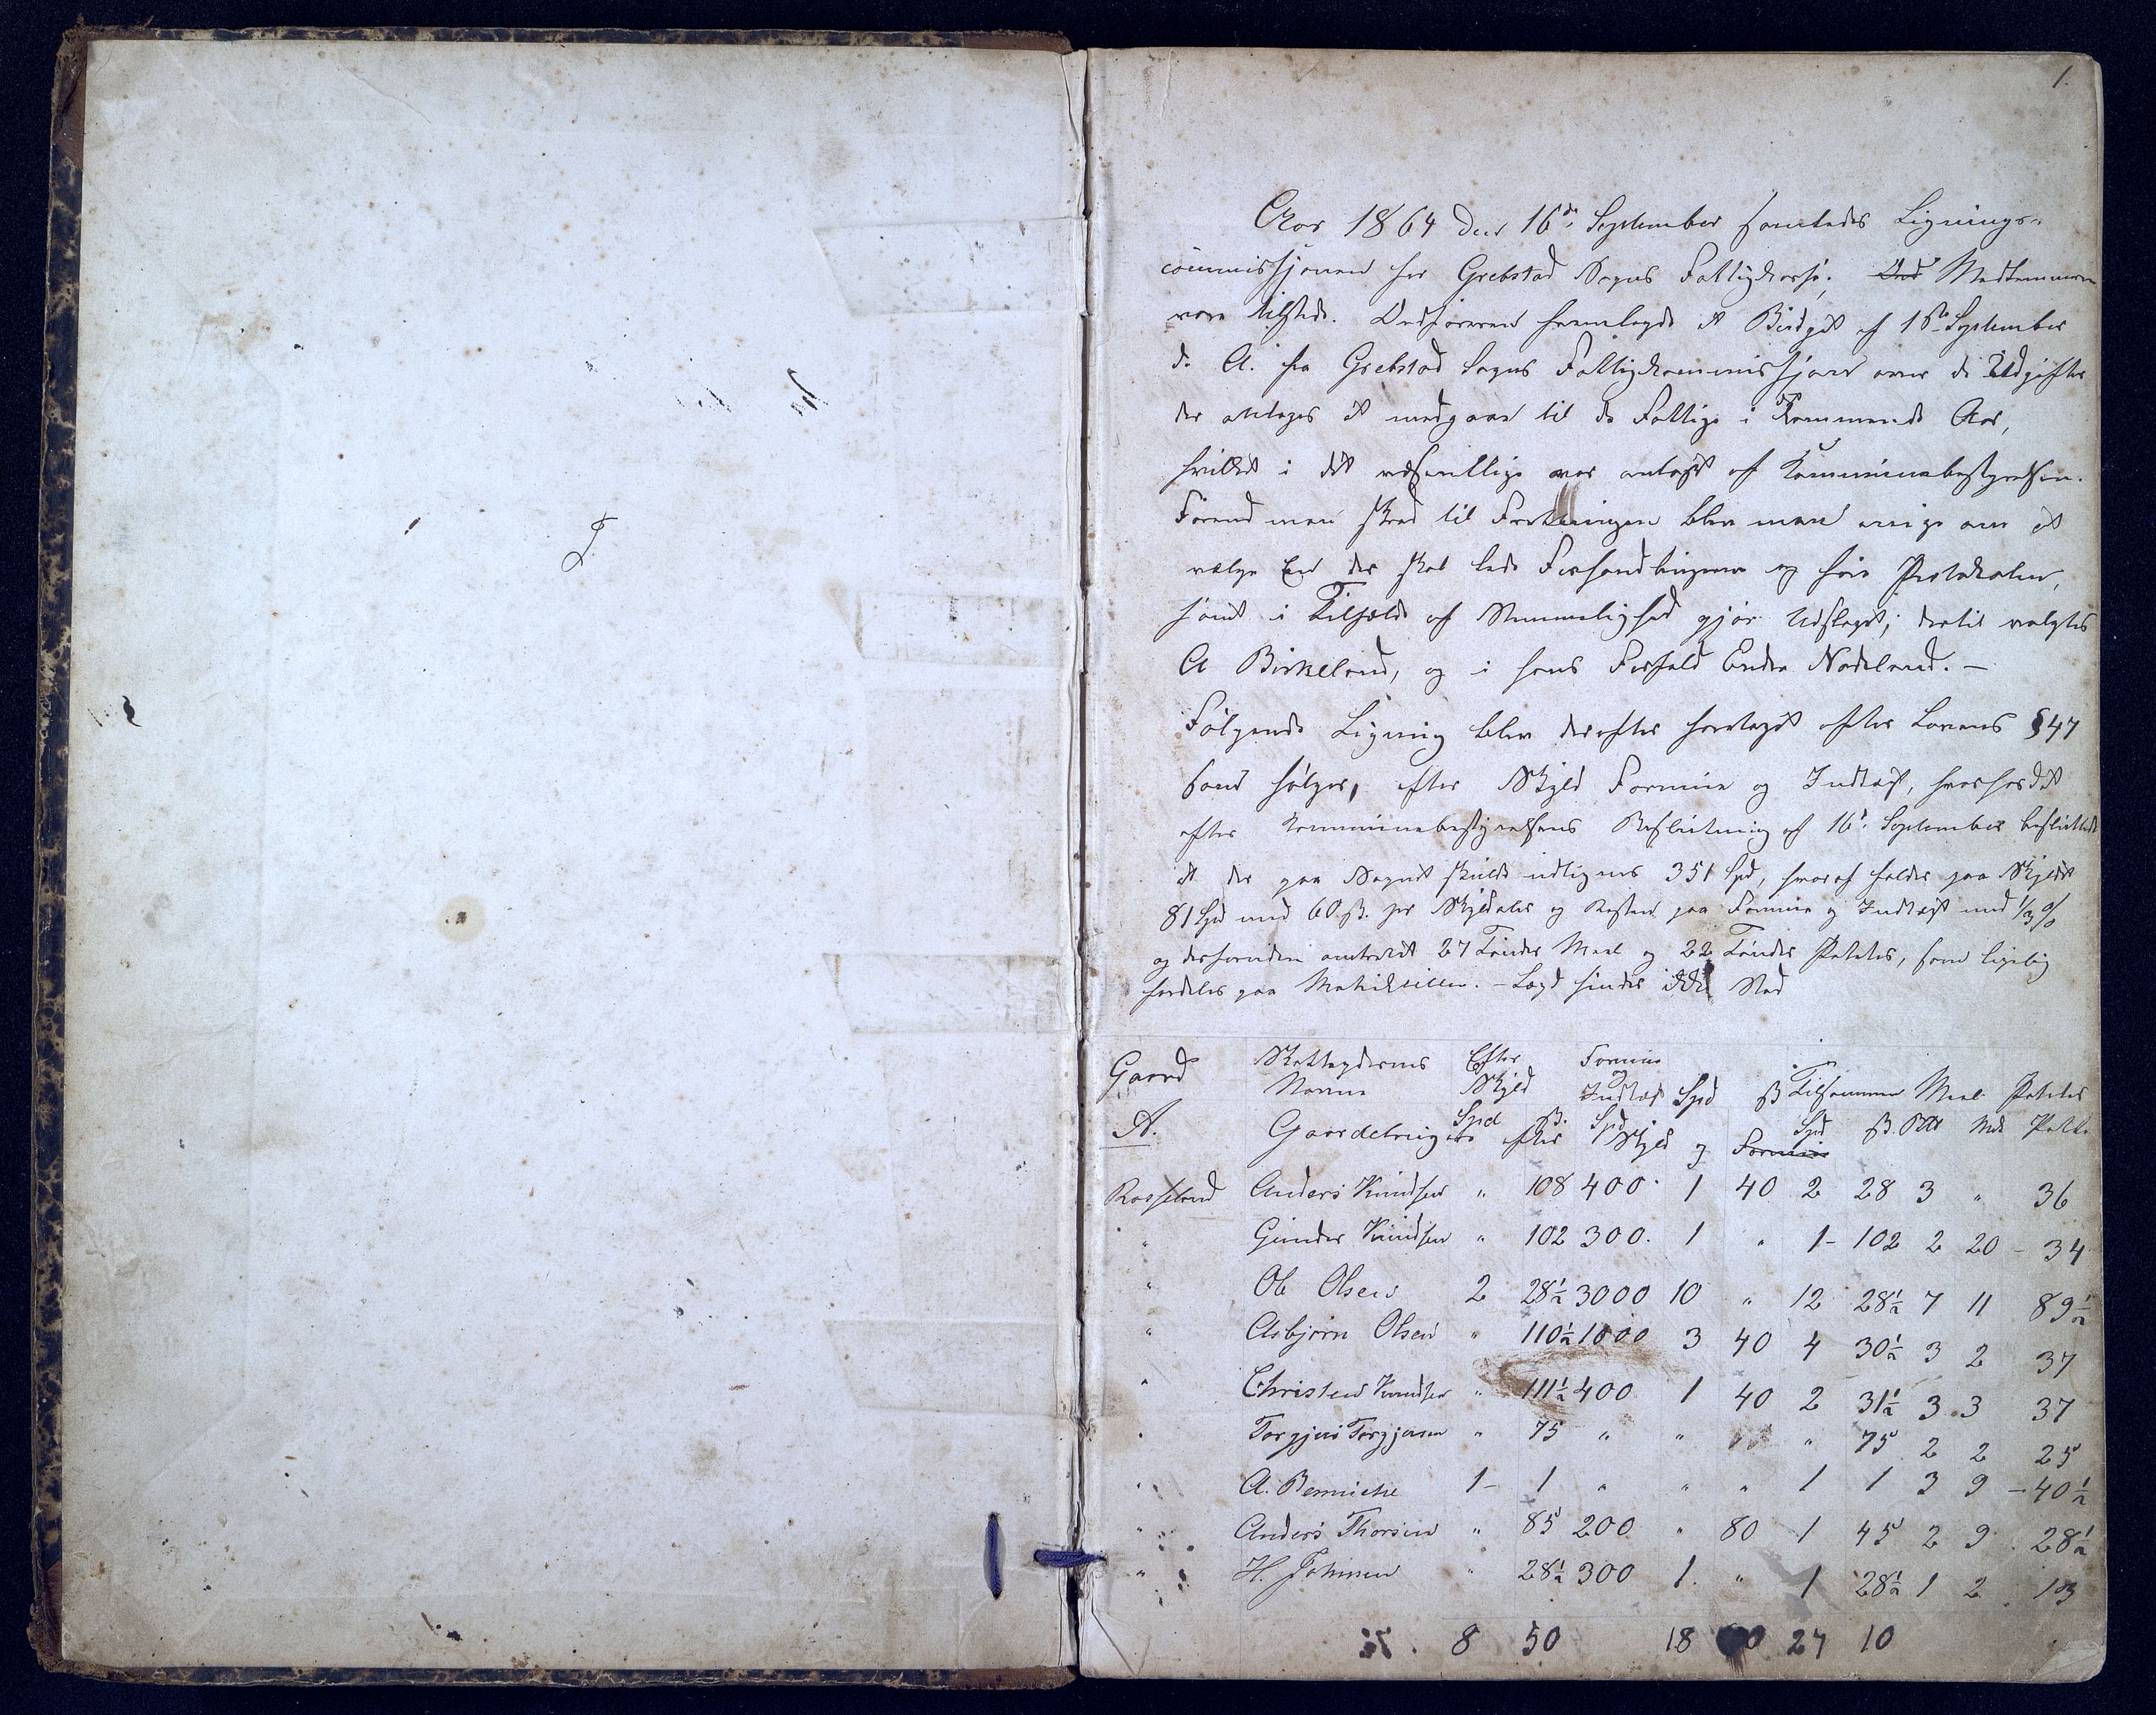 1.
Aar 1864 den 16de September samledes Lignings-
commissjonen for Grebstad Sogns Fattigkasse; Medlemmerne
vare tilstede. Ordføreren fremlagde et Budget af 15de September
d. A. fra Grebstad Sogns Fattigkommissjon over de Udgifter
der antages at medgaae til de Fattige i Kommende Aar,
hvilket i det væsentlige var antaget af Kommunebestyrelsen.
Førend man skred til Forretningen blev man enige om at
vælge En der skal lede Forhandlingerne og føre Protokolen,
samt i Tilfælde af Stemmelighed gjør Udslaget; dertil valgtes
A Birkeland, og i hans Forfald Endre Nodeland. —
Følgende Ligning blev derefter foretaget efter Lovens § 47
som følger, efter Skyld Formue og Indtægt, hvorfor det
efter Kommunebestyrelsens Beslutning af 16de September besluttedes
at der paa Sognet skulde udlignes 351 Spd, hvoraf falder paa Skylden
81 Spd med 60 ß. pr Skylddaler og Resten paa Formue og Indtægt med 1/3 %
og desforuden omtrent 27 Tønder Meel og 22 Tønder Potetes, som ligelig
fordeles paa Matrikkelen. - Lægd finder ikke Sted
Gaard Skatteydernes Navne Efter Skyld Formue og Indtægt Spd ß Tilsammen Meel Potetes
A. Gaardbrugere efter Skyld og Formue Spd ß. Spd Spd ß.
Rosseland Anders Knudsen " 108 400 1 40 2 28 3 " 36
" Gunder Knudsen " 102 300. 1 " 1 - 102 2 20 - 34
" Ole Olsen 2 28½ 3000 10 " 12 28½ 7 11 89½
" Asbjørn Olsen " 110½ 1000 3 40 4 30½ 3 2 37
" Christen Knudsen " 111½ 400 1 40 2 31½ 3 3 37
" Torgjus Torgjusen " 75 " " " " 75 2 2 25
" A. 1 - 1 " " " 1 1 3 9 - 40½
" Anders Thorsen " 85 200 " 80 1 45 2 9 28½
" H. Johnsen " 28½ 300 1. " 1 28½ 1 2 13
8 50 18 27 10